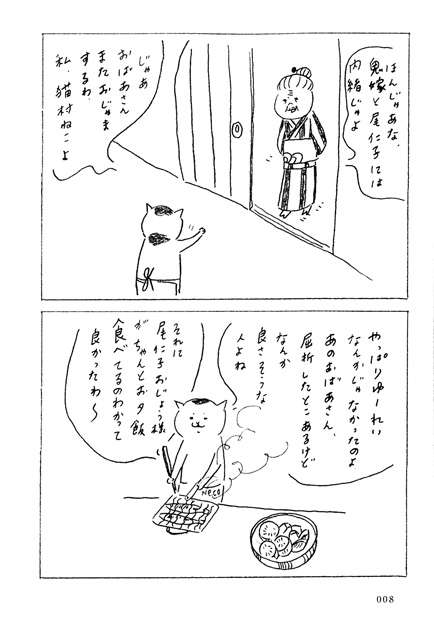 ほんじゃあな、
鬼嫁と尾仁子には
内緒じゃよ
じゃあ
おばあさん
またおじゃま
するわ、
私、猫村ねこよ
やっぱりゆーれい
なんかじゃなかったのよ
あのおばあさん、
屈折したとこあるけど
なんか
良さそうな
人よね
それに
尾仁子おじょう様
がちゃんとお夕飯
食べてるのわかって
良かったわ〜
NECO
008